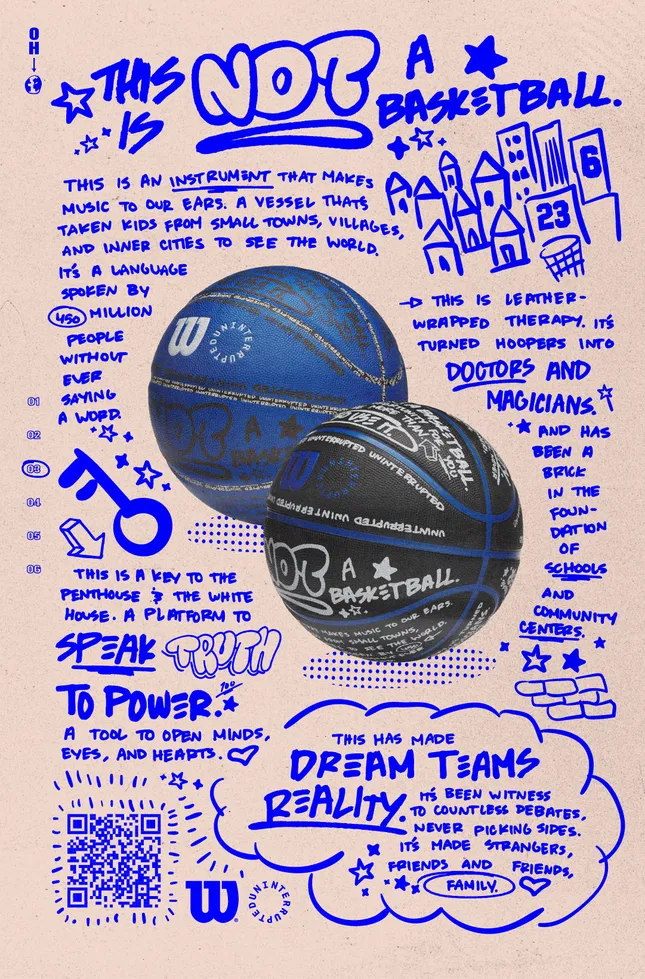 OH
THIS IS NOT A BASKETBALL.
THIS IS AN INSTRUMENT THAT MAKES
MUSIC TO OUR EARS. A VESSEL THATS
TAKEN KIDS FROM SMALL TOWNS, VILLAGES,
AND INNER CITIES TO SEE THE WORLD.
IT'S A LANGUAGE
SPOKEN BY
450 MILLION
PEOPLE
WITHOUT
EVER
SAYING
A WORD.
6
23
THIS IS LEATHER-
WRAPPED THERAPY. IT'S
TURNED HOOPERS INTO
DOCTORS AND
MAGICIANS.
AND HAS
BEEN A
BRICK
IN THE
FOUN-
DATION
OF
SCHOOLS
AND
COMMUNITY
CENTERS.
01
02
03
04
05
06
W UNINTERRUPTED
UNINTERRUPTED UNINTERRUPTED
NOT A
W UNINTERRUPTED
UNINTERRUPTED UNINTERRUPTED
UNINTERRUPTED UNINTERRUPTED
BASKETBALL.
YOU
NOT A
BASKETBALL.
MAKES MUSIC TO OUR EARS.
FROM SMALL TOWNS,
TO SEE THE WORLD.
THIS IS A KEY TO THE
PENTHOUSE & THE WHITE
HOUSE. A PLATFORM TO
SPEAK TRUTH
TO POWER.
A TOOL TO OPEN MINDS,
EYES, AND HEARTS.
THIS HAS MADE
DREAM TEAMS
REALITY. IT'S BEEN WITNESS
TO COUNTLESS DEBATES,
NEVER PICKING SIDES.
IT'S MADE STRANGERS,
FRIENDS AND FRIENDS,
FAMILY.
W UNINTERRUPTED